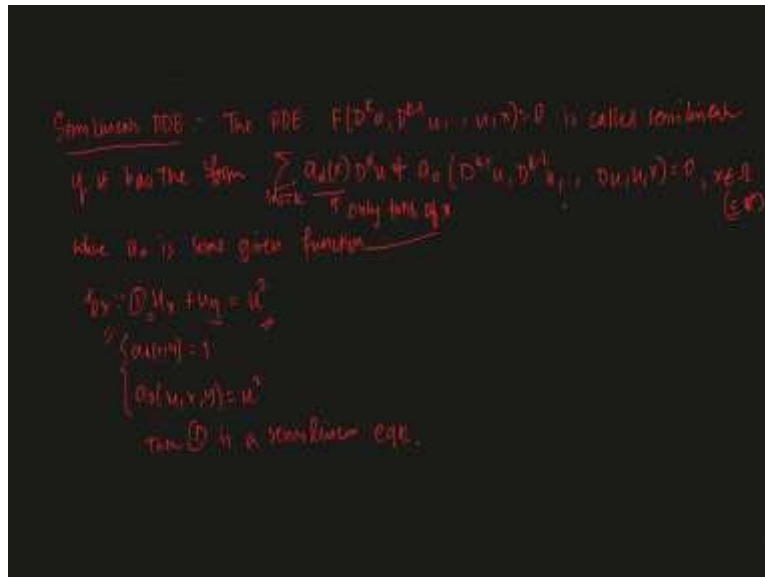 Semilinear PDE - The PDE F(D^k u, D^{k-1} u, .., u, x) = 0 is called semilinear
if it has the form ∑_{|α|=k} a_α(x) D^α u + a_0 (D^{k-1} u, D^{k-2} u, .., Du, u, x) = 0, x ∈ Ω
↑ only func of x
where a_0 is some given function
Ex:- ① u_x + u_y = u²
a(x,y) = 1
a_0(u, x, y) = u²
Then ① is a semilinear eqn.